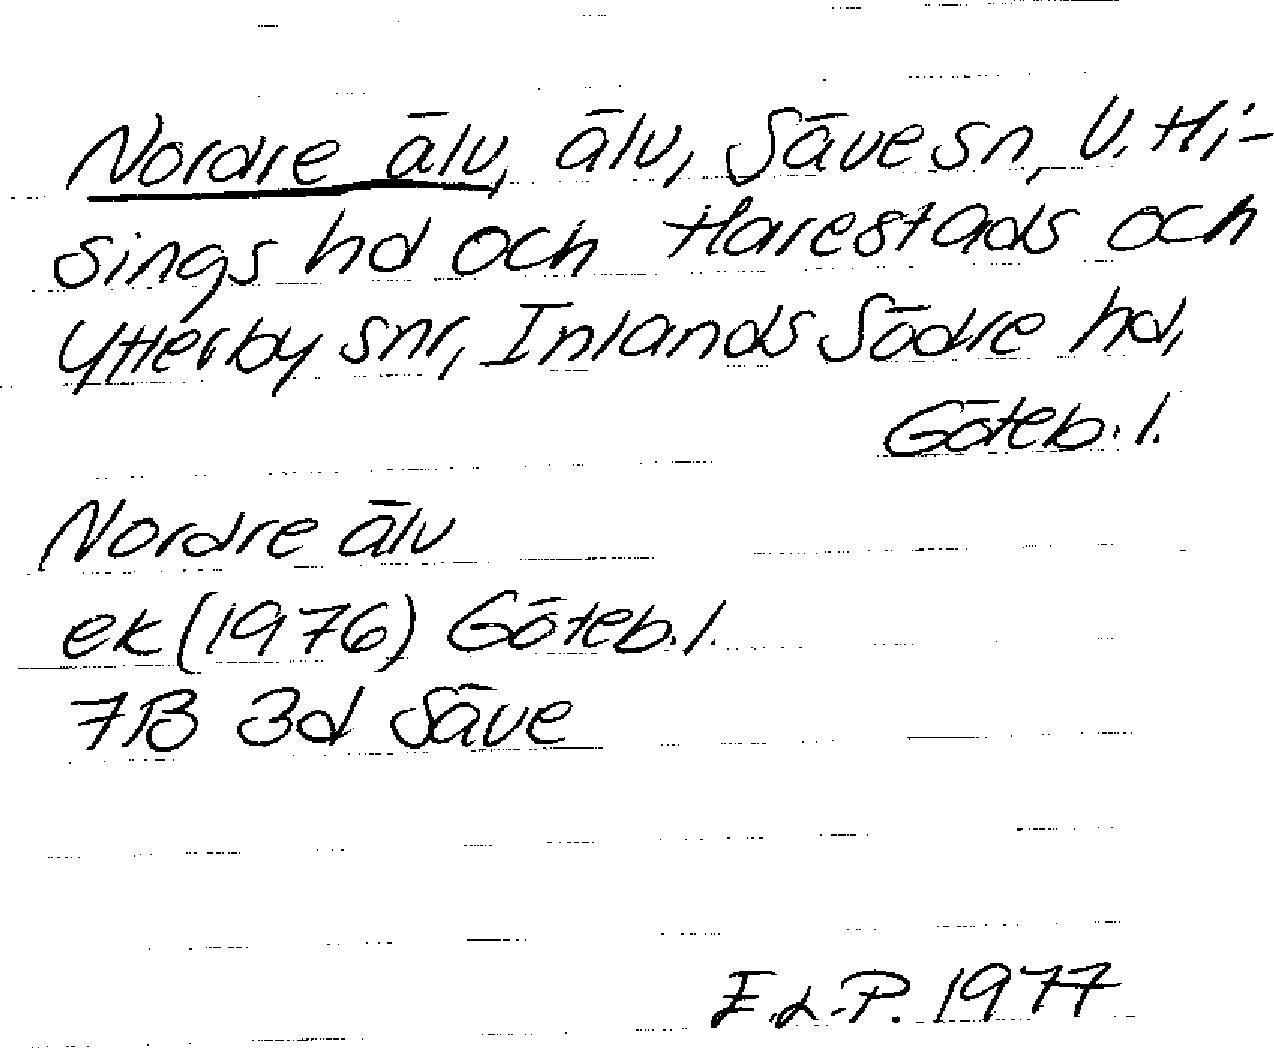 Nordre älv, älv, Säve sn, V. Hi-
sings hd och Harestads och
Ytterby snr, Inlands Södre hd,
Göteb. l.
Nordre älv
ek (1976) Göteb. l.
7B 3d Säve
E.L-P. 1977